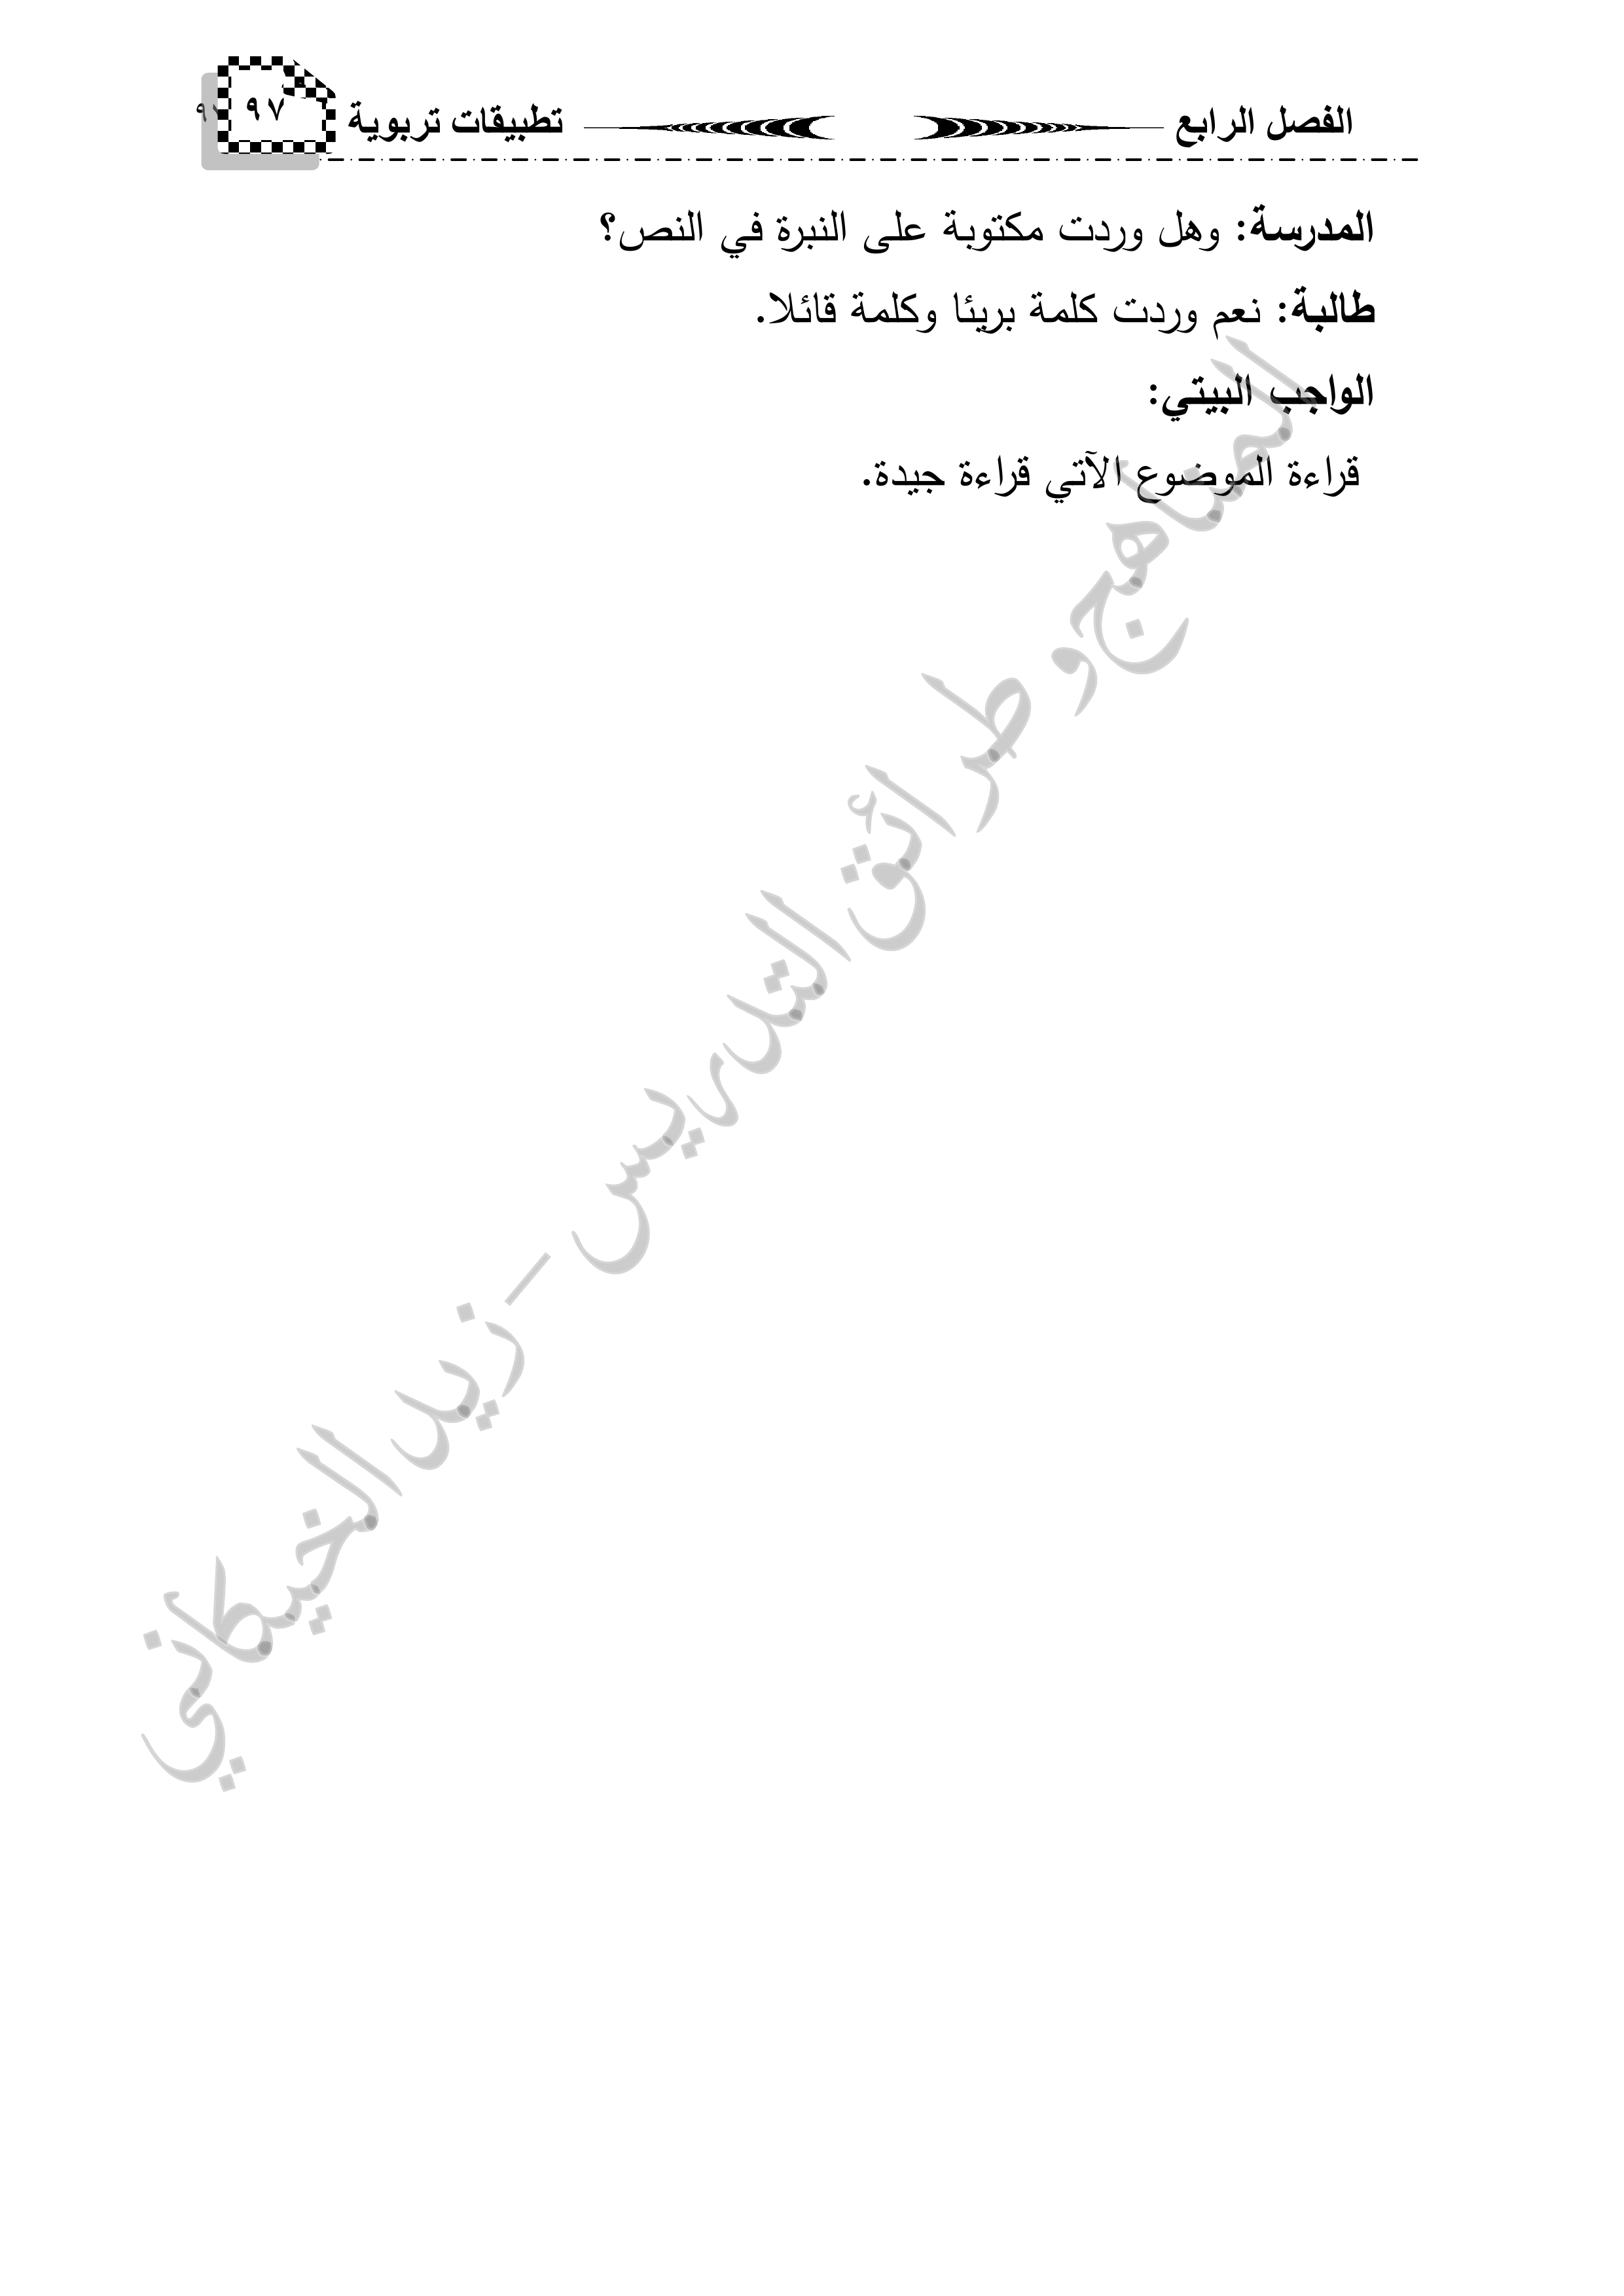 الفصل الرابع تطبيقات تربوية ٩٧
المدرسة: وهل وردت مكتوبة على النبرة في النص؟
طالبة: نعم وردت كلمة بريئا وكلمة قائلا.
الواجب البيتي:
قراءة الموضوع الآتي قراءة جيدة.
المناهج وطرائق التدريس – زيد الخيكاني